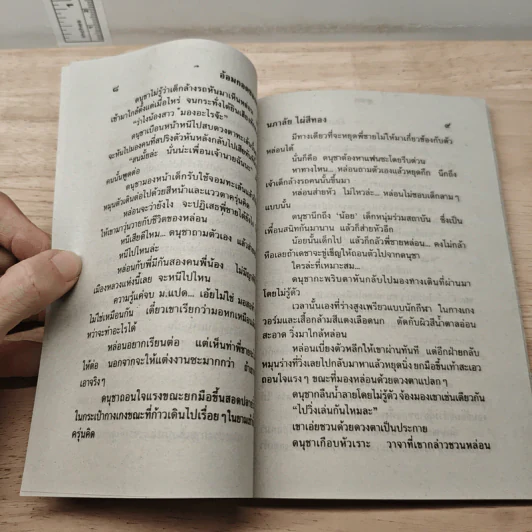 ๘
อ้อมกอด
ดนุชาไม่รู้ว่าเด็กล้างรถหันมาเดินหล่อน
เข้ามาใกล้ตั้งแต่เมื่อไหร่ จนกระทั่งได้ยินเสียง
"ว่าไงน้องสาว มองอะไรจ๊ะ"
ดนุชาเบือนหน้าหนีไปสบดวงตา
จะหันไปมองคนที่สปริงตัวหันหลังกลับไป
"ฮนมั้ยล่ะ นั่นน่ะเพื่อนเจ้านาย
คนปั้นพูดต่อ
ดนุชามองหน้าเด็กรับใช้จอมทะเล้น
หมุนตัวเดินต่อไปด้วยสีหน้าและแววตาครุ่นคิด
หล่อนจะว่ายังไง จะปฏิเสธพี่ชายได้
ให้เขามาวุ่นวายกับชีวิตของหล่อน
หนีเสียดีไหม... ดนุชาถามตัวเอง แล้ว
หนีไปไหนล่ะ
หล่อนกับพี่มีกันสองคนพี่น้อง ไม่มี
เมืองหลวงแห่งนี้เลย จะหนีไปไหน
ความรู้แค่จบ ม.แปด... เอ้อไม่ใช่
ไม่ใช่เหมือนกัน เดี๋ยวเขาเรียกว่ามอหกเหมือน
หว่าจะทำอะไรได้
หล่อนอยากเรียนต่อ แต่เห็นท่าพี่ชาย
ให้ต่อ นอกจากจะให้แต่งงานซะมากกว่า
เอาจริงๆ
ดนุชาถอนใจแรงขณะยกมือขึ้นสอด
ในกระเป๋ากางเกงขณะที่ก้าวเดินไปเรื่อยๆ ในยาม
ครุ่นคิด
นภาลัย ไผ่สีทอง
๙
มีทางเดียวที่จะหยุดพี่ชายไม่ให้มาเกี่ยวข้องกับตัว
หล่อนได้
นั่นก็คือ ดนุชาต้องหาแฟนซะโดยรีบด่วน
หาทางไหน... หล่อนถามตัวเองแล้วหยุดกึก นึกถึง
เจ้าเด็กล้างรถคนนั้นขึ้นมา
หล่อนส่ายหัว ไม่ไหวล่ะ... หล่อนไม่ชอบเด็กตามๆ
แบบนั้น
ดนุชานึกถึง 'น้อย' เด็กหนุ่มร่วมสถาบัน ซึ่งเป็น
เพื่อนสนิทกันมานาน แล้วก็ส่ายหัวอีก
น้อยนั้นเด็กไป แล้วก็กลัวพี่ชายหล่อน... คงไม่กล้า
หือเลยถ้าเดชาจะขู่เข็ญให้ถอนตัวไปจากดนุชา
ใครล่ะที่เหมาะสม...
ดนุชากะพริบตาหันกลับไปมองทางเดิมที่ผ่านมา
โดยไม่รู้ตัว
เวลานั้นเองที่ร่างสูงเพรียวแบบนักกีฬา ในกางเกง
วอร์มและเสื้อกล้ามสีแดงเลือดนก ตัดกับผิวสีน้ำตาลอ่อน
สะอาด วิ่งมาใกล้หล่อน
หล่อนเบี่ยงตัวหลีกให้เขาผ่านทันที แต่อีกฝ่ายกลับ
หมุนร่างที่วิ่งเลยไปกลับมาหาแล้วหยุดนิ่ง ยกมือขึ้นเท้าสะเอว
ถอนใจแรงๆ ขณะที่มองหล่อนด้วยดวงตาแปลกๆ
ดนุชากลืนน้ำลายโดยไม่รู้ตัว จ้องมองเขาเช่นเดียวกัน
"ไปวิ่งเล่นกันไหมล่ะ"
เขาเอ่ยชวนด้วยดวงตาเป็นประกาย
ดนุชาเกือบหัวเราะ วาจาที่เขากล่าวชวนหล่อน